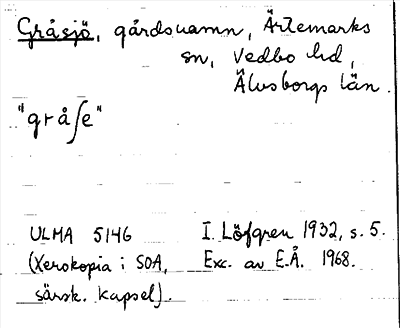 Gråsjö, gårdsnamn, Ärtemarks
sn, Vedbo hd,
Älvsborgs län.
"gråʃe"
ULMA 5146 I. Löfgren 1932, s. 5.
(Xerokopia i SOA, Exc. av E.Å. 1968.
särsk. kapsel).